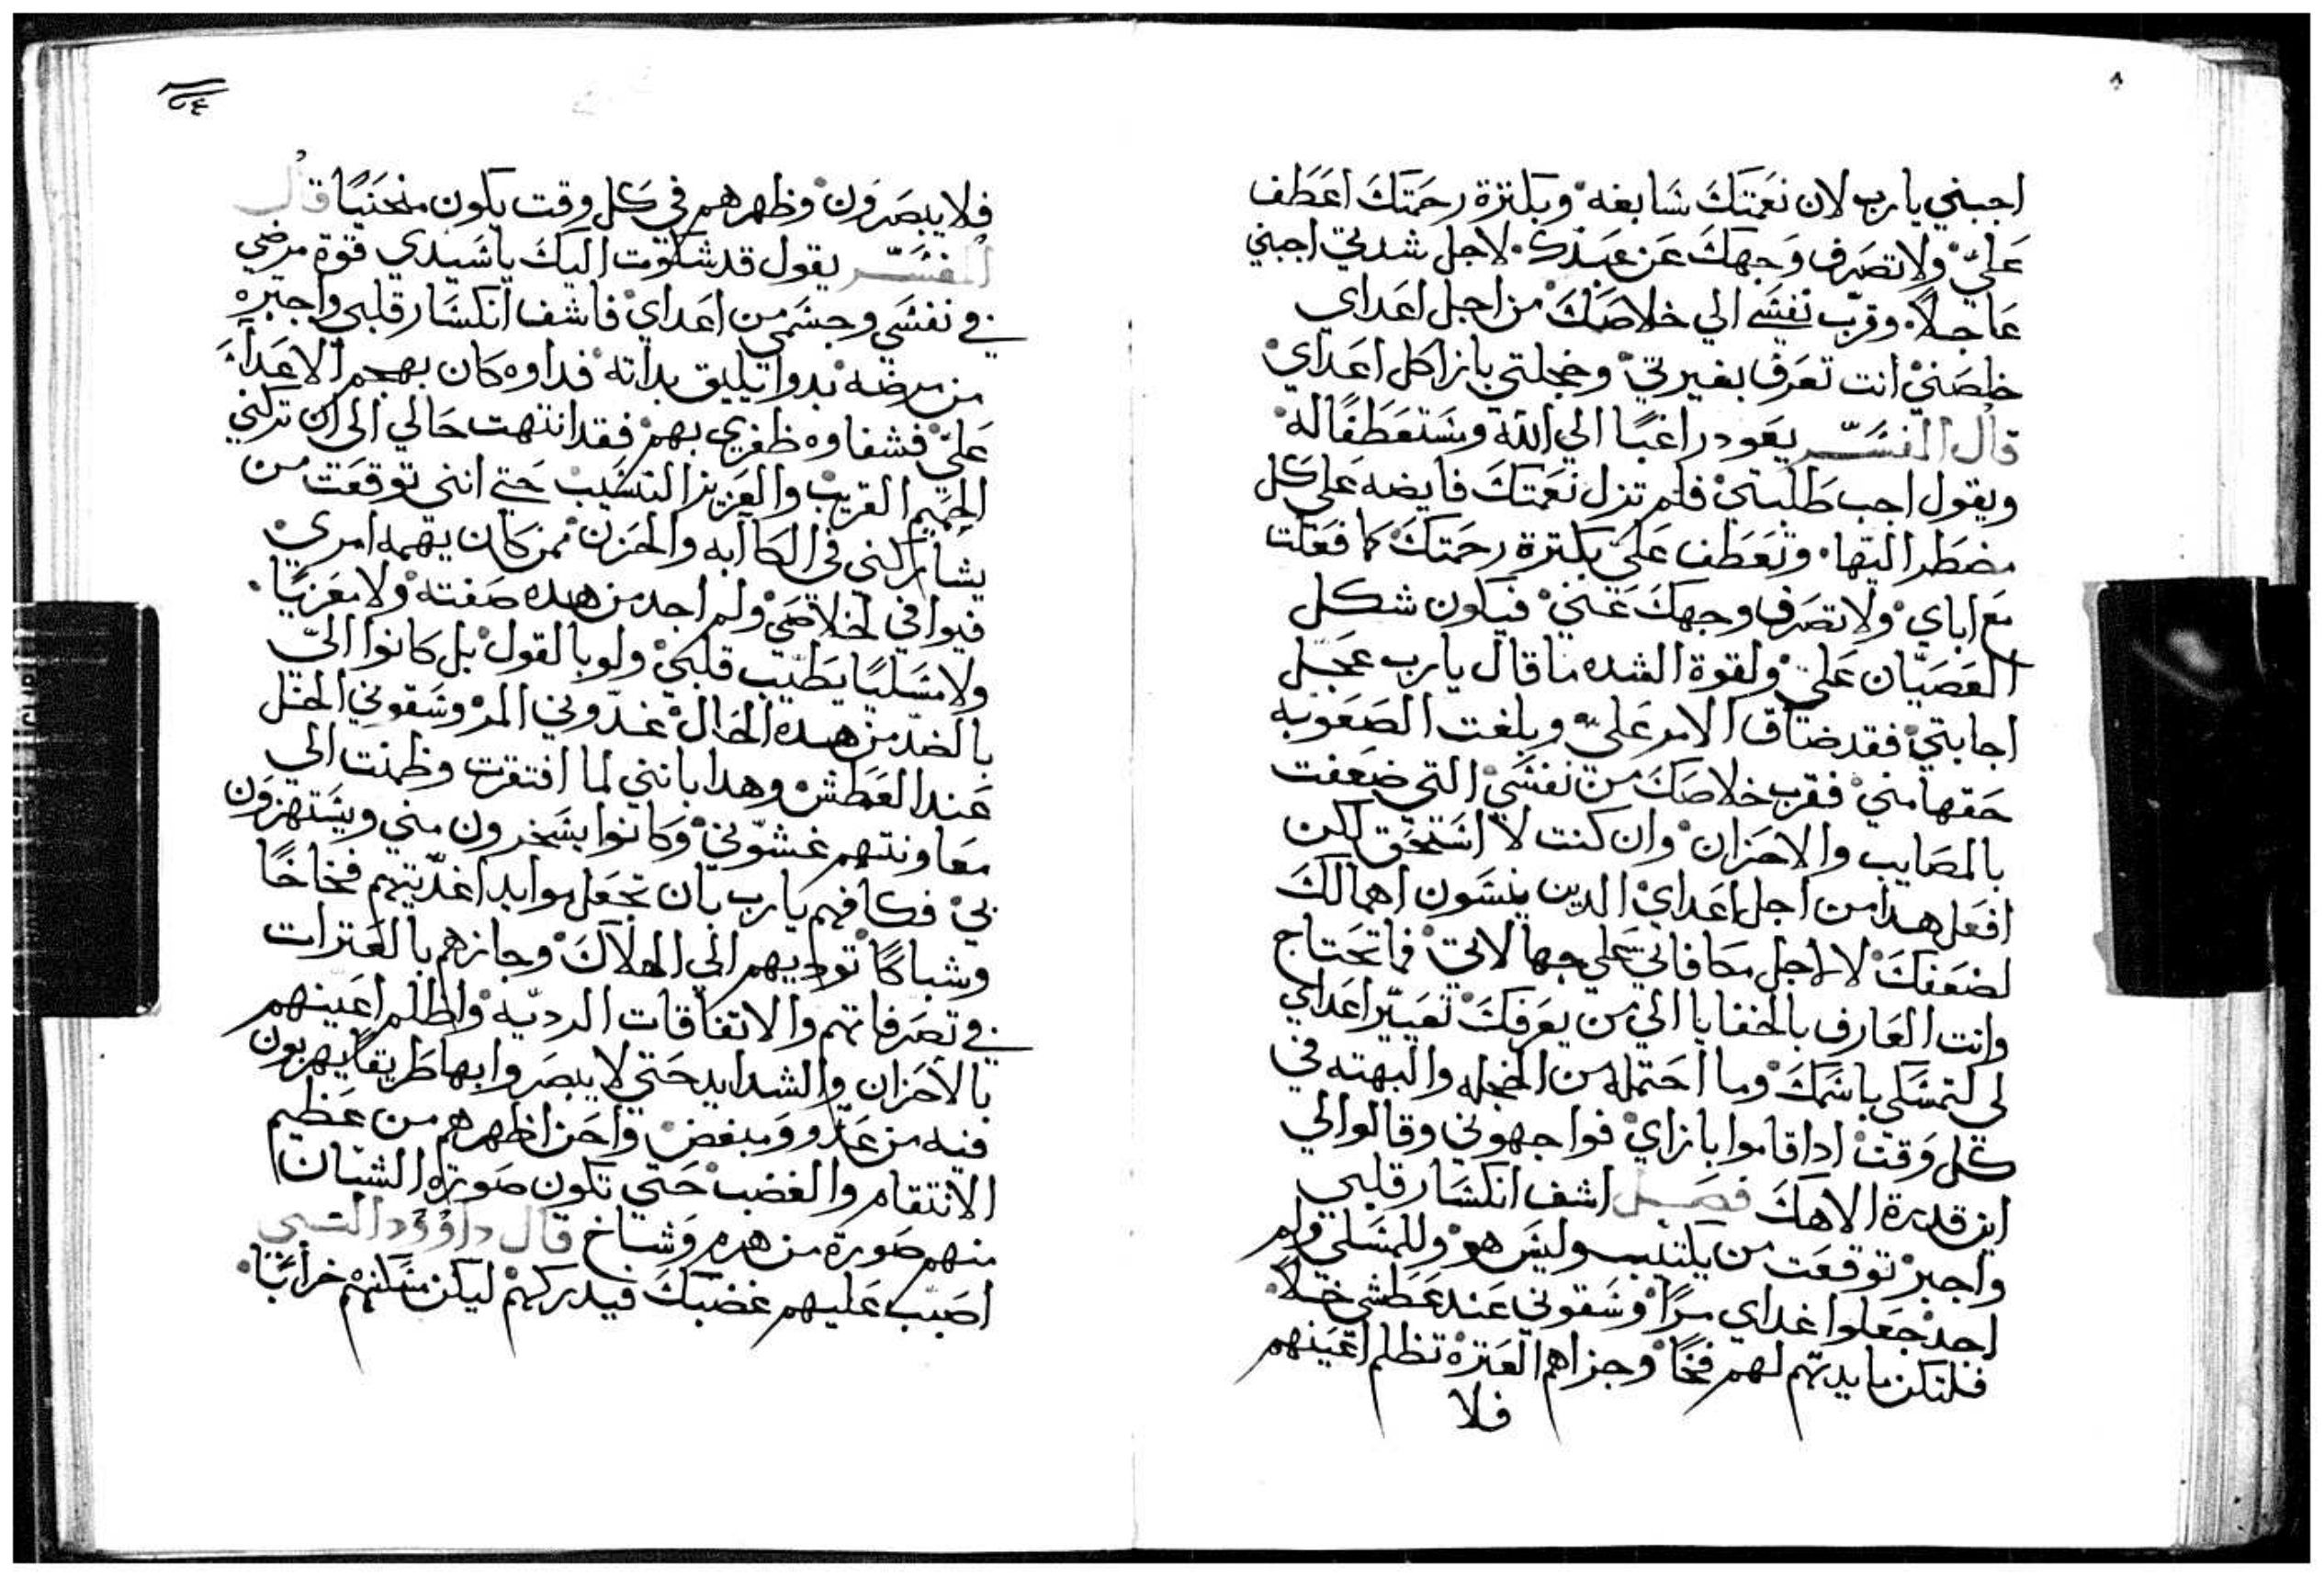 اجبني يا رب لان نعَمتَكَ سَابغه وبكثرة رحمَتكَ اعَطَف
عَليّ ولا تصَرف وَجهكَ عَن عَبدَك لاجل شدتي اجبني
عَاجلاً وقرّب نفسَي الي خلاصَكَ من اجل اعَداي
خلصَني انت تعَرف بغيرتي وخجلتي بازا كل اعَداي
قال المفسَّر يعَود راغبًا الي الله ومسَتعَطَفًا له
ويقول اجب طَلبتي فلم تزل نعَمتكَ فايضه عَلي كل
مضطَر اليها وتعَطَف عَليّ بكثرة رحمتكَ كما فعَلت
مَع اباي ولا تصَرف وجهكَ عَني فيكون شكل
العَصَيان عَليّ ولقوة الشده ما قال يا رب عَجّل
اجابتي فقد ضاق الامر عَليّ وبلغت الصَعَوبه
حَقها مني فقرب خلاصَكَ من نفسَي التي ضعَفت
بالمصَايب والاحَزان وان كنت لا اسَتحَق لكن
افعَل هدا من اجل اعَداي الدين ينسَبون اهمالكَ
لضعَفكَ لا لاجل مكافاتي عَلي جهالاتي فما تحَتاج
وانت العَارف بالخفايا الي من يعَرفكَ تعَييّر اعَداي
لي لتمسَكي باسَمكَ وما احَتمله من الخجله والبهته في
كل وَقت ادا قاموا بازاي فواجهوني وقالوا لي
اين قدرة الاهكَ فصَل اشف انكسَار قلبي
واجبر توقعَت من يكتئب وليسَ هو وللمسَلي ولم
اجد جعَلوا غداي مرًا وسَقوني عَند عَطَشي خلاً
فلتكن مايدتهم لهم فخًا وجزاهم العَثره تظلم اعَينهم
فلا
٨
فلا يبصَرَون وظهرهم في كل وقت يكون منحَنيًا قال
المفسَّر يقول قد شكوت اليكَ يا سَيدي قوة مرضي
في نفسَي وجسَمي من اعَداي فاشف انكسَار قلبي واجبره
من مرضه بدوا يليق بداته فداوه كان بهجم الاعَداء
عَليّ فشفاوه ظفري بهم فقد انتهت حَالي الي ان تركني
الحَميم القريب والعَزيز النسَيب حَتي انني توقعَت من
يشاركني في الكاابه والحَزن ممن كان يهمه امري
فيوافي لخلاصَي ولم اجد من هده صَفته ولا معَزيًا
ولا مسَليًا يطَيّب قلبي ولو بالقول بل كانوا اليّ
بالضدّ من هده الحَال غدّوني المر وسَقوني الخل
عَند العَطَش وهدا بانني لما افتقرت وظمئت الي
معَاونتهم غشوّني وَكانوا يسَخرون مني ويسَتهزون
بي فكافهم يا رب بان تجعَل موايد اغدّيتهم فخاخًا
وشباكًا توديهم الي الهلاكَ وجازهم بالعَثرات
في تصَرفاتهم والاتفاقات الرديّه واظلم اعَينهم
بالاحَزان والشدايد حَتي لا يبصَروا بها طَريقًا يهربون
فيه من عَدو وَمبغض واحَن اظهرهم من عَظيم
الانتقام والغضب حَتي تكون صَورة الشبّان
منهم صَورة من هرم وَشاخ قال داوُود النبي
اصَبب عَليهم غضبكَ فيدركهم ليكن مسَكنهم خرابًا